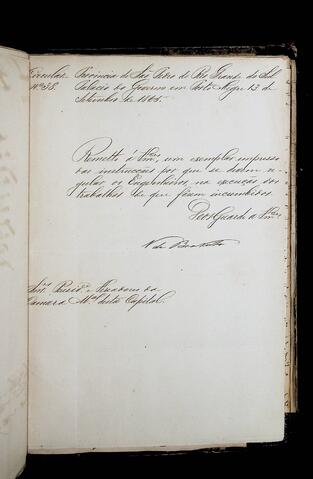 Circular Provincia de São Pedro do Rio Grande do Sul
Palacio do Governo em Porto Alegre 13 de
Setembro de 1865.
Remetto á Vmces um exemplar impresso
das instrucções por que se devem re-
gular os Engenheiros na execução dos
trabalhos de que forem incumbidos.
Deos Guarde a Vmces
Snres Presid.e e Vereadores da
Camara M.al desta Capital.